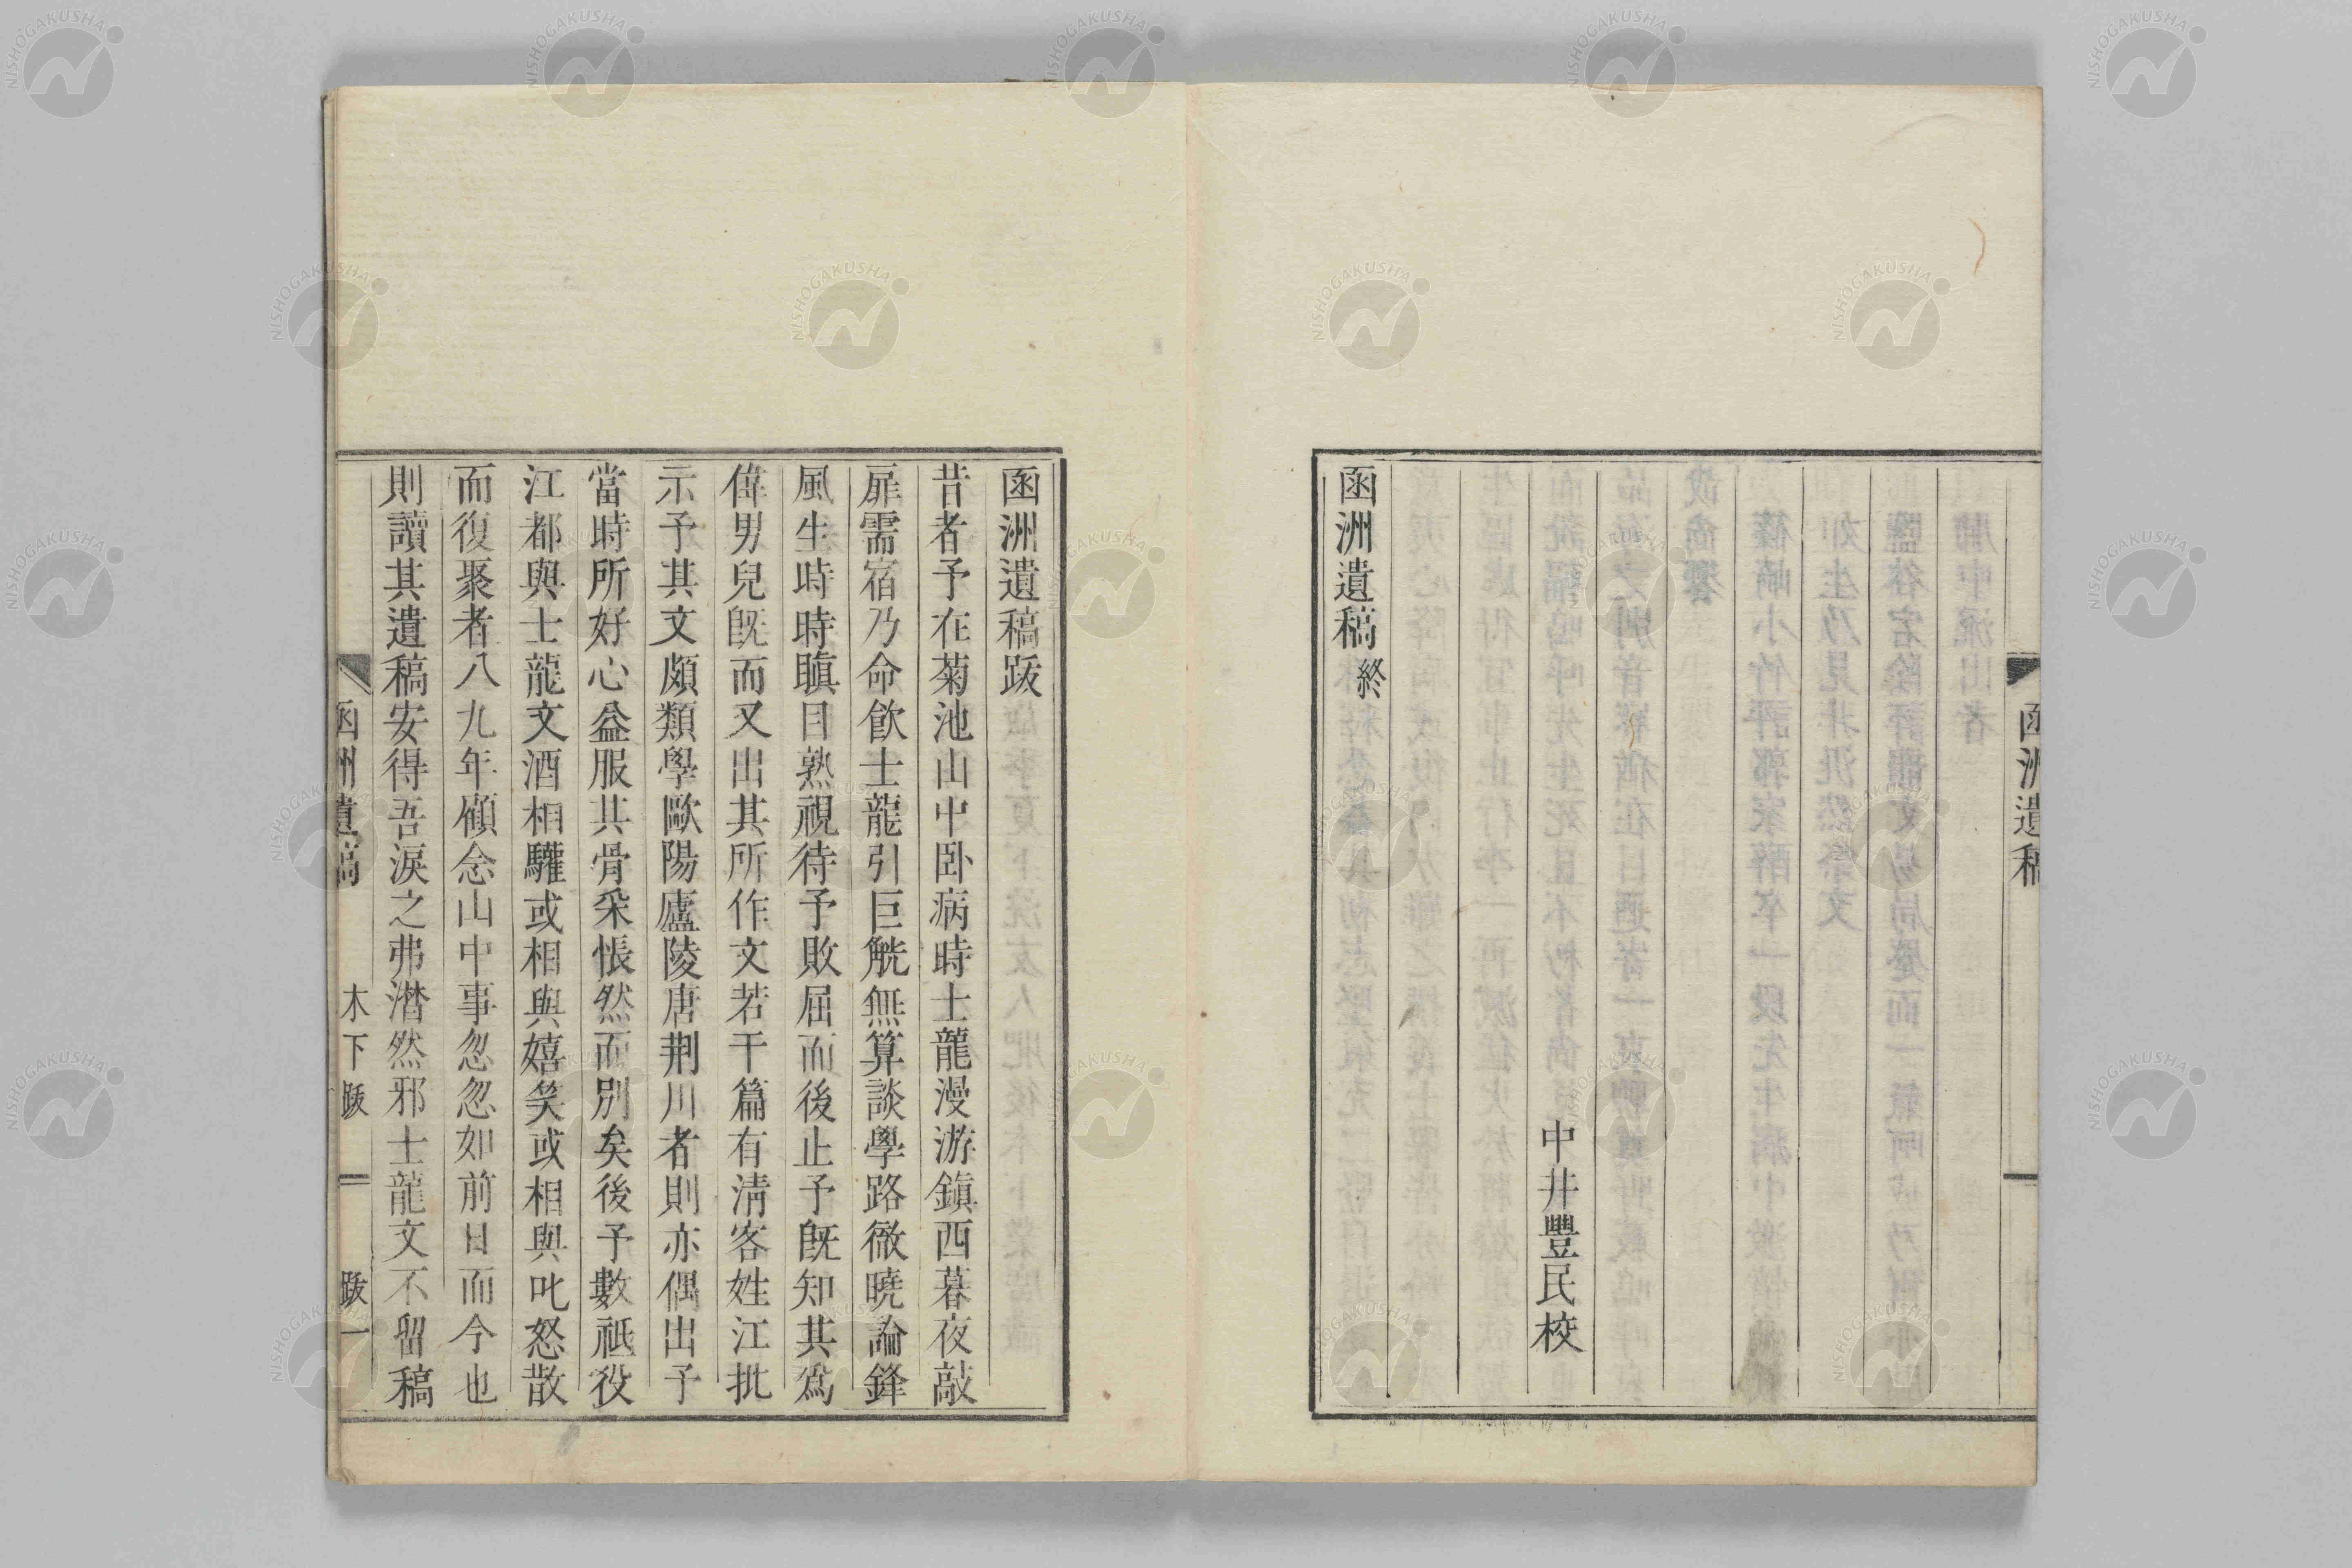 中井豐民校
函洲遺稿終
函洲遺稿
函洲遺稿跋
昔者予在菊池山中卧病時士龍漫游鎮西暮夜敲
扉需宿乃命飲士龍引巨觥無算談學路徹曉論鋒
風生時時瞋目熟視待予敗屈而後止予既知其爲
偉男兒既而又出其所作文若干篇有淸客姓江批
示予其文頗類學歐陽廬陵唐荆川者則亦偶出予
當時所好心益服其骨采悵然而別矣後予數祗役
江都與士龍文酒相驩或相與嬉笑或相與叱怒散
而復聚者八九年顧念山中事忽忽如前日而今也
則讀其遺稿安得吾淚之弗潸然邪士龍文不留稿
函洲遺稿 木下跋 跋一
NISHOGAKUSHA